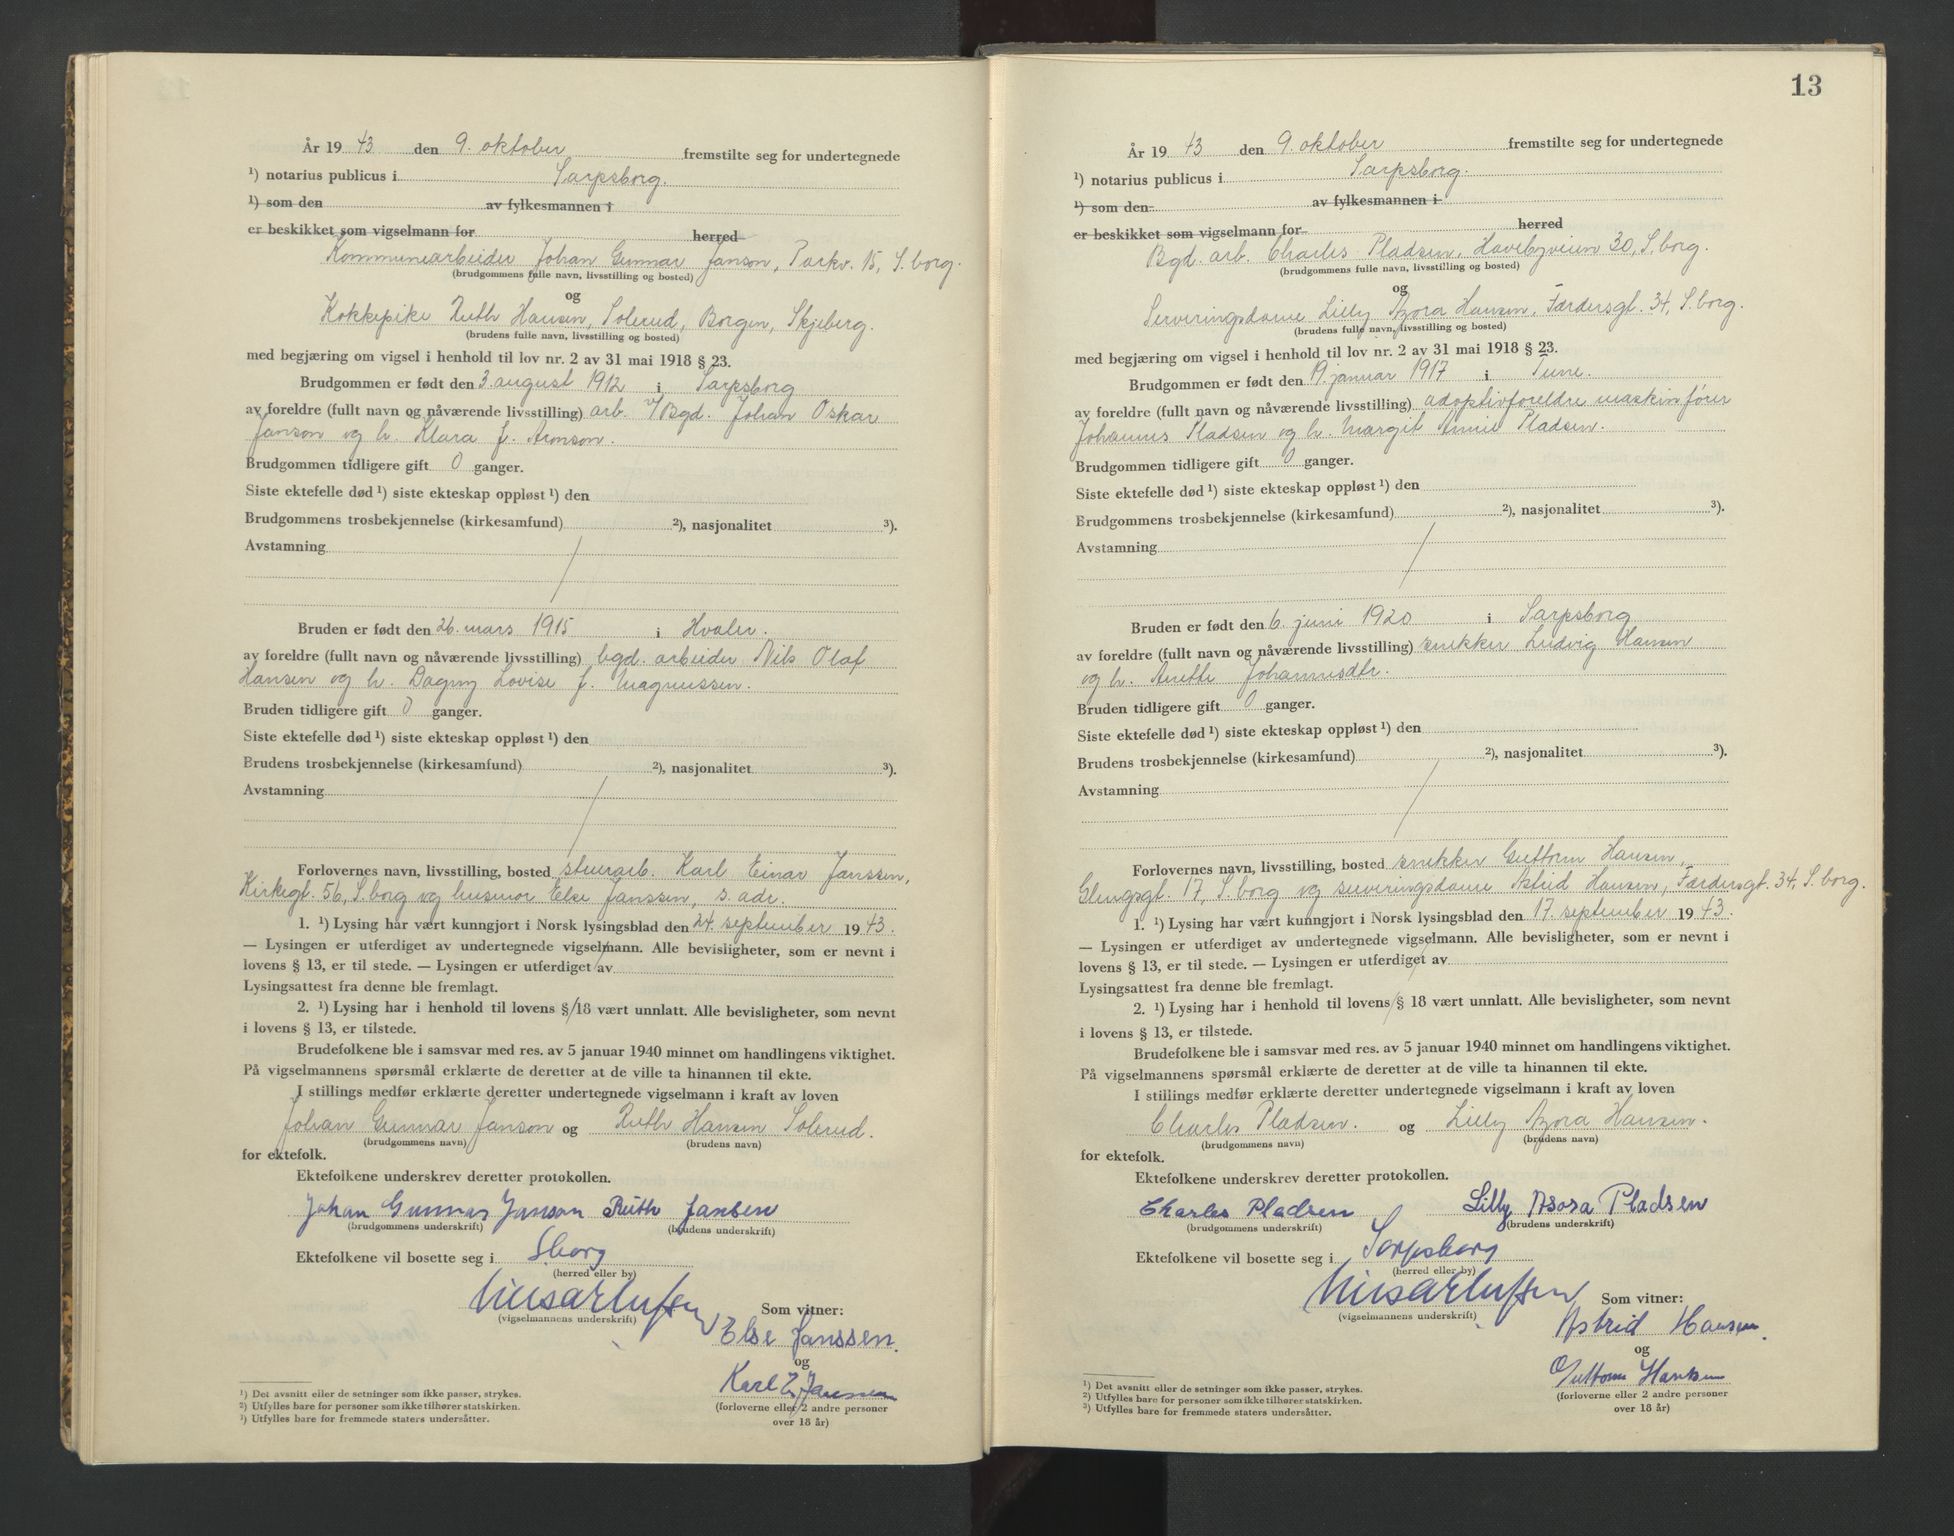 År 1943 den 9. oktober fremstilte seg for undertegnede
¹) notarius publicus i Sarpsborg.
¹) som den av fylkesmannen i
er beskikket som vigselmann for herred
Kommunearbeider Johan Gunnar Janson, Parkv. 15, S.borg.
(brudgommens fulle navn, livsstilling og bosted)
og
Kokkepike Ruth Hansen, Solerud, Borgen, Skjeberg.
(brudens fulle navn, livsstilling og bosted)
med begjæring om vigsel i henhold til lov nr. 2 av 31 mai 1918 § 23.
Brudgommen er født den 3. august 1912 i Sarpsborg
av foreldre (fullt navn og nåværende livsstilling) arb. v/Bgd. Johan Oskar
Janson og h. Klara f. Aronson.
Brudgommen tidligere gift 0 ganger.
Siste ektefelle død ¹) siste ekteskap oppløst ¹) den
Brudgommens trosbekjennelse (kirkesamfund) ²), nasjonalitet ³).
Avstamning
Bruden er født den 26. mars 1915 i Hvaler.
av foreldre (fullt navn og nåværende livsstilling) bgd. arbeider Nils Olaf
Hansen og h. Dagny Lovise f. Magnussen.
Bruden tidligere gift 0 ganger.
Siste ektefelle død ¹) siste ekteskap oppløst ¹) den
Brudens trosbekjennelse (kirkesamfund) ²), nasjonalitet ³).
Avstamning
Forlovernes navn, livsstilling, bosted stuerarb. Karl Einar Janssen,
Kirkegt. 56, S.borg og husmor Else Janssen, s. adr.
1. ¹) Lysing har vært kunngjort i Norsk lysingsblad den 24. september 1943.
— Lysingen er utferdiget av undertegnede vigselmann. Alle bevisligheter, som er nevnt i
lovens § 13, er til stede. — Lysingen er utferdiget av
Lysingsattest fra denne ble fremlagt.
2. ¹) Lysing har i henhold til lovens § 18 vært unnlatt. Alle bevisligheter, som nevnt
i lovens § 13, er tilstede.
Brudefolkene ble i samsvar med res. av 5 januar 1940 minnet om handlingens viktighet.
På vigselmannens spørsmål erklærte de deretter at de ville ta hinannen til ekte.
I stillings medfør erklærte deretter undertegnede vigselmann i kraft av loven
Johan Gunnar Janson og Ruth Hansen Solerud.
(brudgommens navn) (brudens navn)
for ektefolk.
Ektefolkene underskrev deretter protokollen.
Johan Gunnar Janson Ruth Jansen
(brudgommens underskrift) (brudens underskrift)
Ektefolkene vil bosette seg i Sborg
(herred eller by)
Som vitner:
(vigselmannens underskrift)
Else Janssen.
og
Karl E. Janssen
(forloverne eller 2 andre personer
over 18 år)
¹) Det avsnitt eller de setninger som ikke passer, strykes.
²) Utfylles bare for personer som ikke tilhører statskirken.
³) Utfylles bare for fremmede staters undersåtter.
13
År 1943 den 9. oktober fremstilte seg for undertegnede
¹) notarius publicus i Sarpsborg.
¹) som den av fylkesmannen i
er beskikket som vigselmann for herred
Bgd. arb. Charles Pladsen, Havebyveien 30, S.borg.
(brudgommens fulle navn, livsstilling og bosted)
og
Serveringsdame Lilly Azora Hansen, Færdersgt. 34, S.borg.
(brudens fulle navn, livsstilling og bosted)
med begjæring om vigsel i henhold til lov nr. 2 av 31 mai 1918 § 23.
Brudgommen er født den 19. januar 1917 i Tune.
av foreldre (fullt navn og nåværende livsstilling) adoptivforeldre maskinfører
Johannes Pladsen og h. Margit Annie Pladsen.
Brudgommen tidligere gift 0 ganger.
Siste ektefelle død ¹) siste ekteskap oppløst ¹) den
Brudgommens trosbekjennelse (kirkesamfund) ²), nasjonalitet ³).
Avstamning
Bruden er født den 6. juni 1920 i Sarpsborg
av foreldre (fullt navn og nåværende livsstilling) snekker Ludvig Hansen
og h. Anette Johannesdtr.
Bruden tidligere gift 0 ganger.
Siste ektefelle død ¹) siste ekteskap oppløst ¹) den
Brudens trosbekjennelse (kirkesamfund) ²), nasjonalitet ³).
Avstamning
Forlovernes navn, livsstilling, bosted snekker Guttorm Hansen,
Glengsgt. 17, S.borg og serveringsdame Astrid Hansen, Færdersgt. 34, S.borg.
1. ¹) Lysing har vært kunngjort i Norsk lysingsblad den 17. september 1943.
— Lysingen er utferdiget av undertegnede vigselmann. Alle bevisligheter, som er nevnt i
lovens § 13, er til stede. — Lysingen er utferdiget av
Lysingsattest fra denne ble fremlagt.
2. ¹) Lysing har i henhold til lovens § 18 vært unnlatt. Alle bevisligheter, som nevnt
i lovens § 13, er tilstede.
Brudefolkene ble i samsvar med res. av 5 januar 1940 minnet om handlingens viktighet.
På vigselmannens spørsmål erklærte de deretter at de ville ta hinannen til ekte.
I stillings medfør erklærte deretter undertegnede vigselmann i kraft av loven
Charles Pladsen. og Lilly Azora Hansen.
(brudgommens navn) (brudens navn)
for ektefolk.
Ektefolkene underskrev deretter protokollen.
Charles Pladsen Lilly Asora Pladsen
(brudgommens underskrift) (brudens underskrift)
Ektefolkene vil bosette seg i Sarpsborg
(herred eller by)
Som vitner:
(vigselmannens underskrift)
Astrid Hansen.
og
Guttorm Hansen
(forloverne eller 2 andre personer
over 18 år)
¹) Det avsnitt eller de setninger som ikke passer, strykes.
²) Utfylles bare for personer som ikke tilhører statskirken.
³) Utfylles bare for fremmede staters undersåtter.